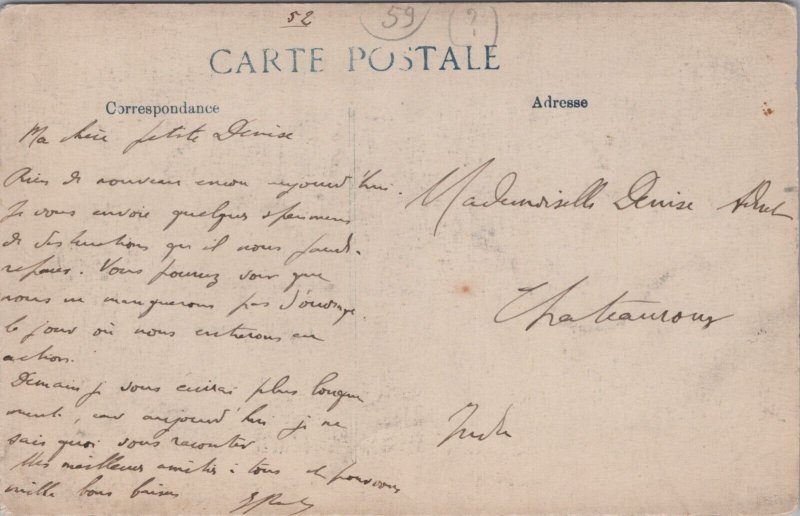 52
59
?
CARTE POSTALE
Correspondance
Adresse
Ma chère petite Denise
Rien de nouveau encore aujourd'hui.
Je vous envoie quelques spécimens
de destructions qu'il nous faudra
refaire. Vous pourrez voir que
nous ne manquerons pas d'ouvrage
le jour où nous entrerons en
action.
Demain je vous écrirai plus longue
ment, car aujourd'hui je ne
sais quoi vous raconter.
Mes meilleures amitiés à tous et pour vous
mille bons baisers
Mademoiselle Denise
Chateauroux
Indre